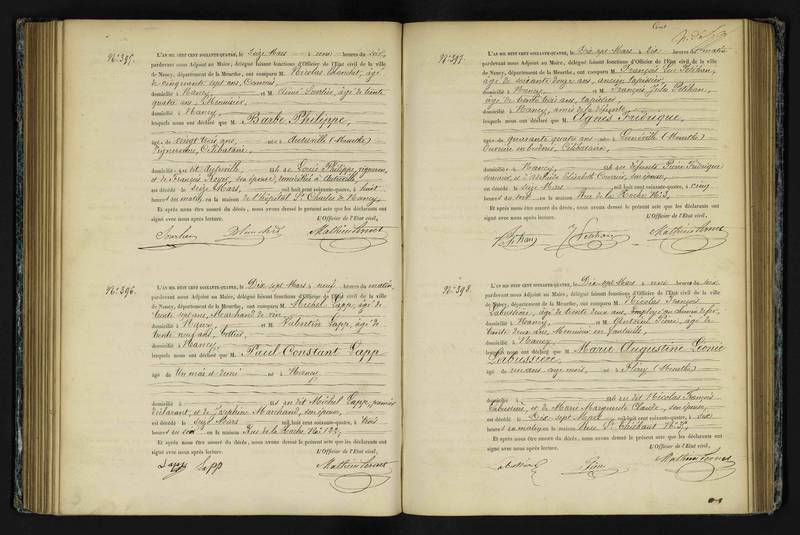 N° 395.
L'AN MIL HUIT CENT SOIXANTE-QUATRE, le Seize Mars à onze heures du
pardevant nous Adjoint au Maire, délégué faisant fonctions d'Officier de l'Etat civil de la ville
de Nancy, département de la Meurthe, ont comparu M. Nicolas Blanchet, âgé
de cinquante sept ans,
domicilié à Nancy et M. âgé de trente
quatre ans,
domicilié à Nancy,
lesquels nous ont déclaré que M. Barbe Philippe,
âgé de vingt trois ans, né à Autreville (Meurthe)
Vigneronne, Célibataire,
domicilié au dit Autreville, de Louis Philippe, vigneron,
et de François son épouse, domiciliés à Autreville,
est décédé le Seize Mars, mil huit cent soixante-quatre, à huit
heures du matin, en la maison de l'hôpital St Charles de Nancy,
Et après nous être assuré du décès, nous avons dressé le présent acte que les déclarants ont
signé avec nous après lecture. L'Officier de l'Etat civil,
N° 396.
L'AN MIL HUIT CENT SOIXANTE-QUATRE, le Dix sept Mars à neuf heures du matin,
pardevant nous Adjoint au Maire, délégué faisant fonctions d'Officier de l'Etat civil de la ville
de Nancy, département de la Meurthe, ont comparu M. Michel Sapp, âgé de
trente sept ans, Marchand de vin,
domicilié à Nancy et M. Valentin Sapp, âgé de
trente neuf ans, bottier,
domicilié à Nancy,
lesquels nous ont déclaré que M. Paul Constant Sapp
âgé de Un mois et demi né à Nancy
domicilié fils du dit Michel Sapp, premier
déclarant, et de Joséphine Marchand, son épouse,
est décédé le Seize Mars mil huit cent soixante-quatre, à trois
heures du soir en la maison Rue de la Roche N° 122,
Et après nous être assuré du décès, nous avons dressé le présent acte que les déclarants ont
signé avec nous après lecture. L'Officier de l'Etat civil,
Sapp Sapp
N° 397.
L'AN MIL HUIT CENT SOIXANTE-QUATRE, le Dix sept Mars à dix heures du matin
pardevant nous Adjoint au Maire, délégué faisant fonctions d'Officier de l'Etat civil de la ville
de Nancy, département de la Meurthe, ont comparu M. François Luc Pétihan,
âgé de soixante douze ans, ancien tapissier,
domicilié à Nancy et M. François Jules Pétihan,
âgé de trente trois ans, tapissier,
domicilié à Nancy, amis de la défunte,
lesquels nous ont déclaré que M. Agnès Frédrique,
âgé de quarante quatre ans né à (Meurthe)
Ouvrière en broderie, Célibataire,
domicilié à Nancy, fille de défunts Pierre Frédrique
et d' Elisabeth son épouse,
est décédé le seize Mars mil huit cent soixante-quatre, à cinq
heures du soir en la maison Rue de la Roche N° 3,
Et après nous être assuré du décès, nous avons dressé le présent acte que les déclarants ont
signé avec nous après lecture. L'Officier de l'Etat civil,
Pétihan J Pétihan
N° 398.
L'AN MIL HUIT CENT SOIXANTE-QUATRE, le Dix sept Mars à onze heures du
pardevant nous Adjoint au Maire, délégué faisant fonctions d'Officier de l'Etat civil de la ville
de Nancy, département de la Meurthe, ont comparu M. Nicolas François
Labussière, âgé de trente deux ans, Employé au chemin de fer,
domicilié à Nancy, et M. Pierre, âgé de
trente deux ans, Menuisier en fauteuils,
domicilié à Nancy
lesquels nous ont déclaré que M. Marie Augustine Léonie
Labussière
âgé de onze mois, né à Fléry (Meurthe)
domicilié fille du dit Nicolas François
Labussière, et de Marie Marguerite Claude, son épouse,
est décédé le Dix sept Mars mil huit cent soixante-quatre, à six
heures du matin, en la maison Rue St Thiébaut N°
Et après nous être assuré du décès, nous avons dressé le présent acte que les déclarants ont
signé avec nous après lecture. L'Officier de l'Etat civil,
Labussière Pierre